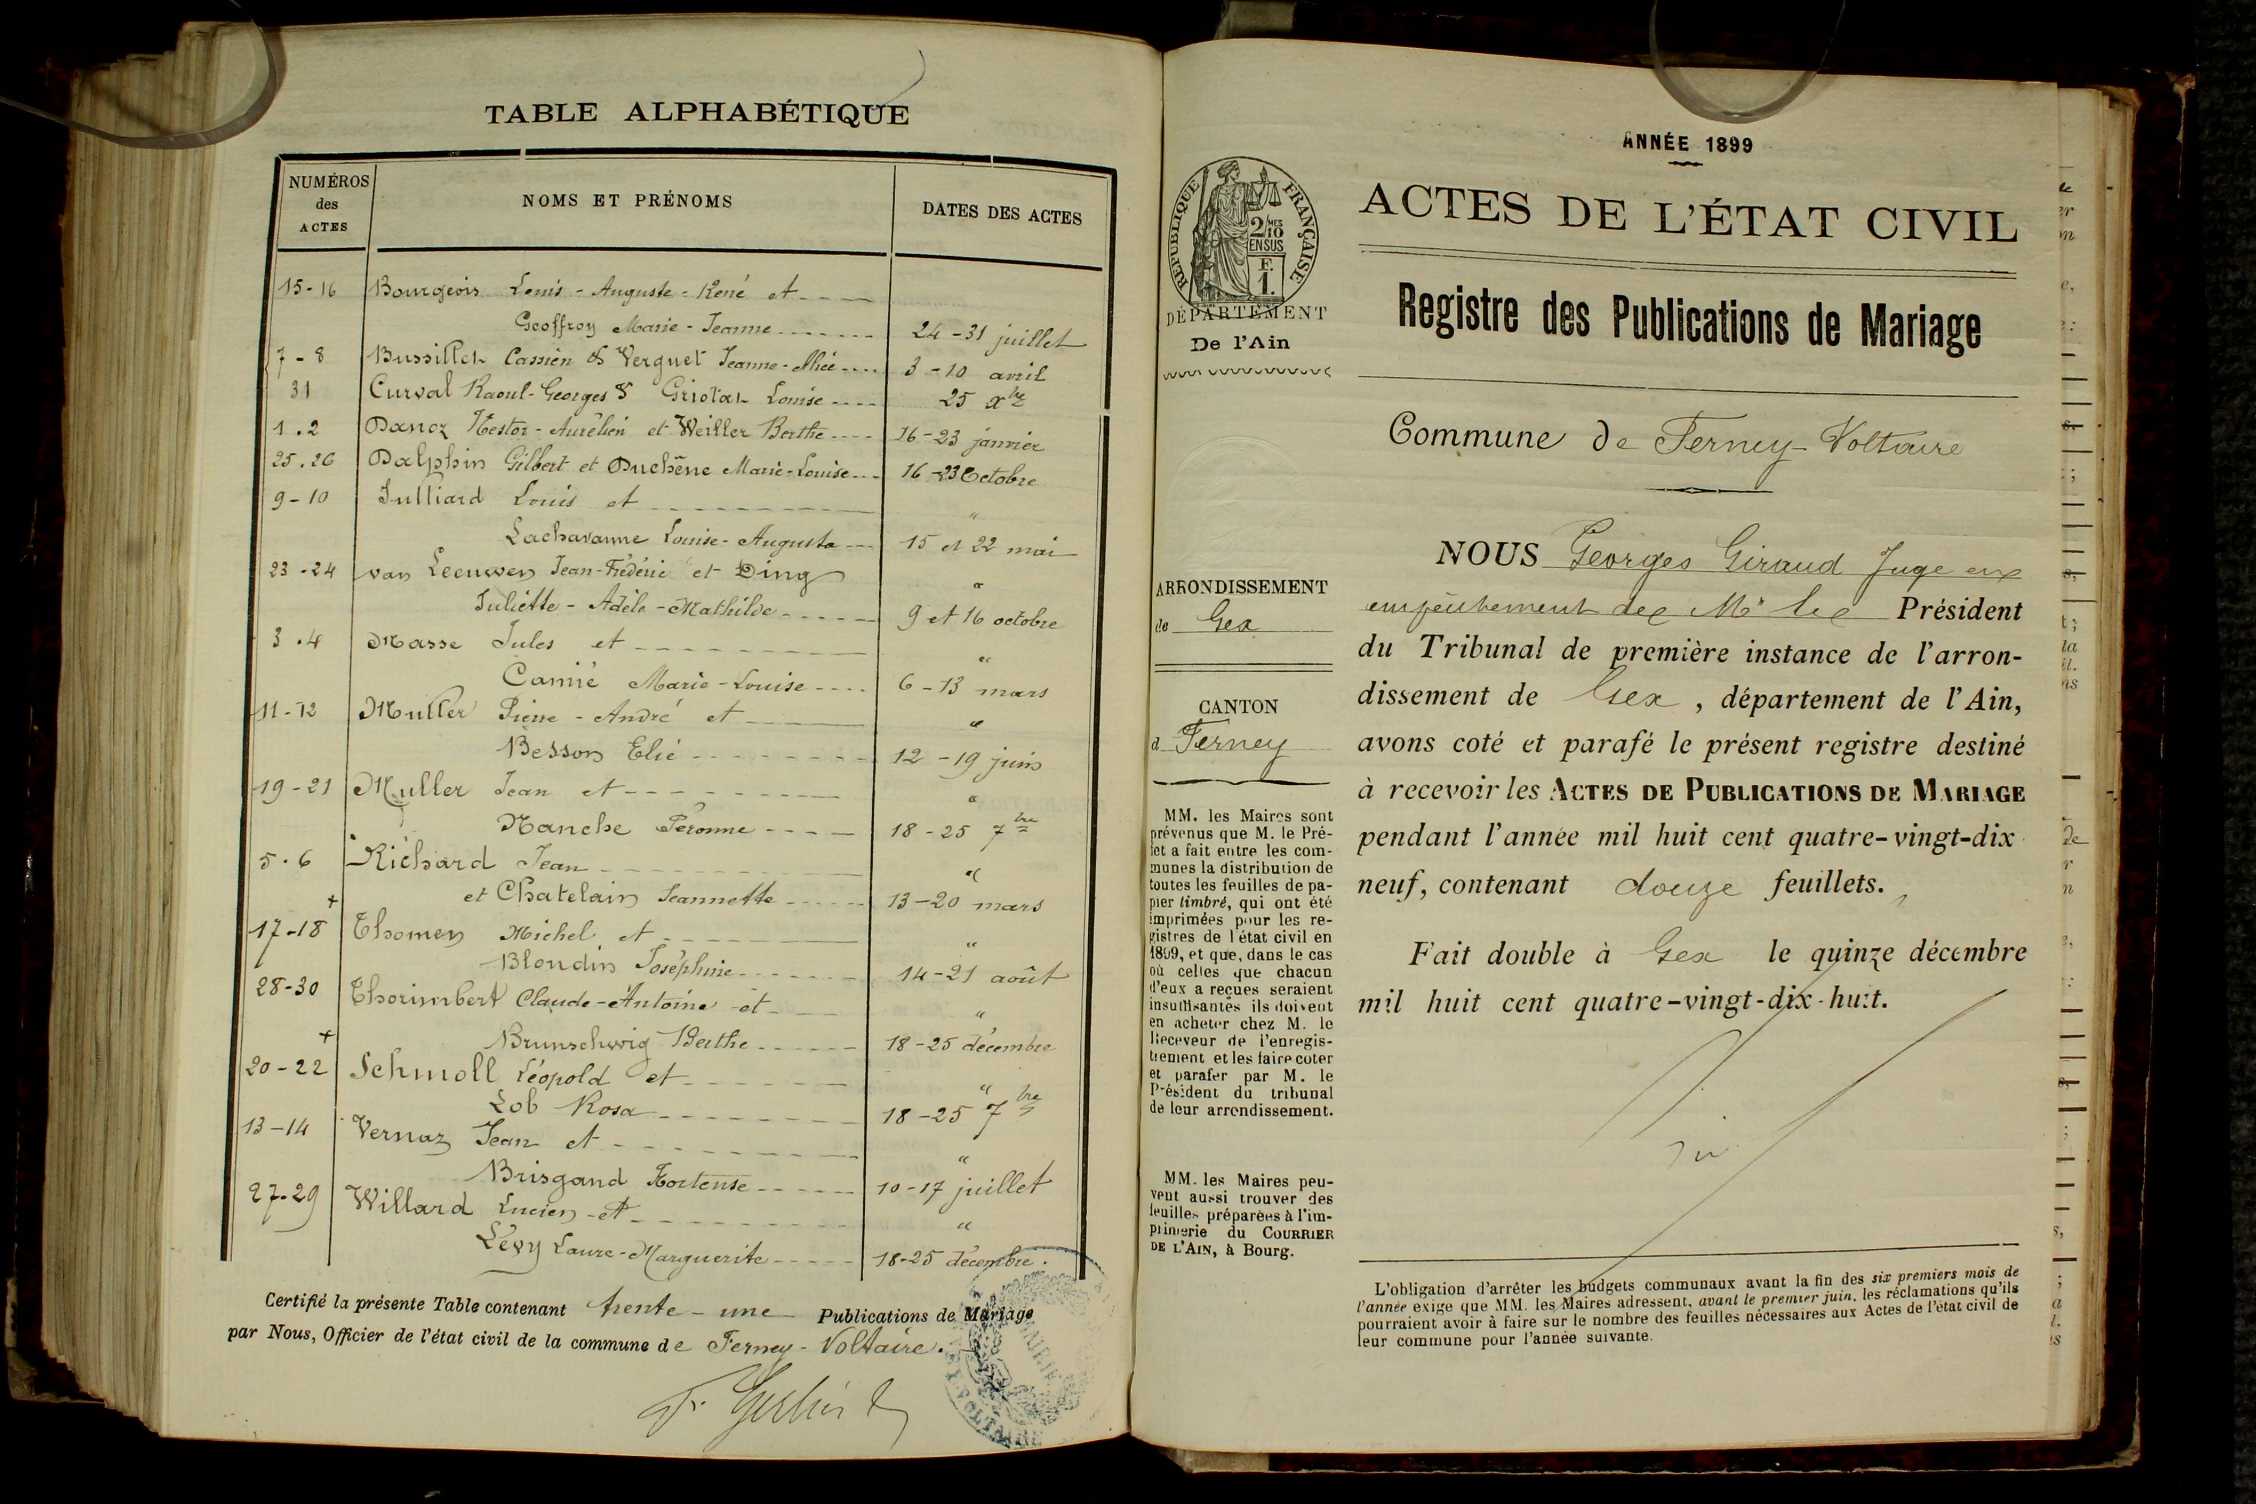 TABLE ALPHABÉTIQUE
NUMÉROS des ACTES
NOMS ET PRÉNOMS
DATES DES ACTES
15-16 Bourgeois Louis-Auguste-René et
Geoffroy Marie-Jeanne 24-31 juillet
7-8 Bussillet Cassien & Verguet Jeanne-Alice 3-10 avril
31 Curval Raoul-Georges & Griotat Louise 25 Xbre
1.2 Danoz Nestor-Aurélien et Weiller Berthe 16-23 janvier
25.26 Dalphin Gilbert et Duchêne Marie-Louise 16-23 Octobre
9-10 Julliard Louis et "
Lachavanne Louise-Augusta 15 et 22 mai
23-24 van Leeuwen Jean-Frédéric et Ding "
Juliette-Adèle-Mathilde 9 et 16 octobre
3.4 Masse Jules et "
Camié Marie-Louise 6-13 mars
11-12 Muller Pierre-André et "
Besson Elié 12-19 juin
19-21 Muller Jean et "
Manche Péronne 18-25 7bre
5.6 Richard Jean "
et Chatelain Jeannette 13-20 mars
17-18 Thomen Michel et "
Blondin Joséphine 14-21 août
28-30 Thorimbert Claude-Antoine et "
Brunschwig Berthe 18-25 décembre
20-22 Schmoll Léopold et "
Lob Rosa 18-25 7bre
13-14 Vernaz Jean et "
Brisgand Hortense 10-17 juillet
27-29 Willard Lucien et "
Lévy Laure-Marguerite 18-25 décembre.
Certifié la présente Table contenant trente-une Publications de Mariage
par Nous, Officier de l'état civil de la commune de Ferney-Voltaire.
ANNÉE 1899
ACTES DE L'ÉTAT CIVIL
Registre des Publications de Mariage
Commune de Ferney-Voltaire
NOUS Georges Giraud Juge en
empêchement de Mr le Président
du Tribunal de première instance de l'arron-
dissement de Gex, département de l'Ain,
avons coté et parafé le présent registre destiné
à recevoir les ACTES DE PUBLICATIONS DE MARIAGE
pendant l'année mil huit cent quatre-vingt-dix
neuf, contenant douze feuillets.
Fait double à Gex le quinze décembre
mil huit cent quatre-vingt-dix-huit.
L'obligation d'arrêter les budgets communaux avant la fin des six premiers mois de
l'année exige que MM. les Maires adressent, avant le premier juin, les réclamations qu'ils
pourraient avoir à faire sur le nombre des feuilles nécessaires aux Actes de l'état civil de
leur commune pour l'année suivante.
RÉPUBLIQUE FRANÇAISE
2/10 MES
EN SUS
F.
1.
DÉPARTEMENT
De l'Ain
ARRONDISSEMENT
de Gex
CANTON
d Ferney
MM. les Maires sont
prévenus que M. le Pré-
fet a fait entre les com-
munes la distribution de
toutes les feuilles de pa-
pier timbré, qui ont été
imprimées pour les re-
gistres de l'état civil en
1899, et que, dans le cas
où celles que chacun
d'eux a reçues seraient
insuffisantes ils doivent
en acheter chez M. le
Receveur de l'enregis-
trement et les faire coter
et parafer par M. le
Président du tribunal
de leur arrondissement.
MM. les Maires peu-
vent aussi trouver des
feuilles préparées à l'im-
primerie du COURRIER
DE L'AIN, à Bourg.